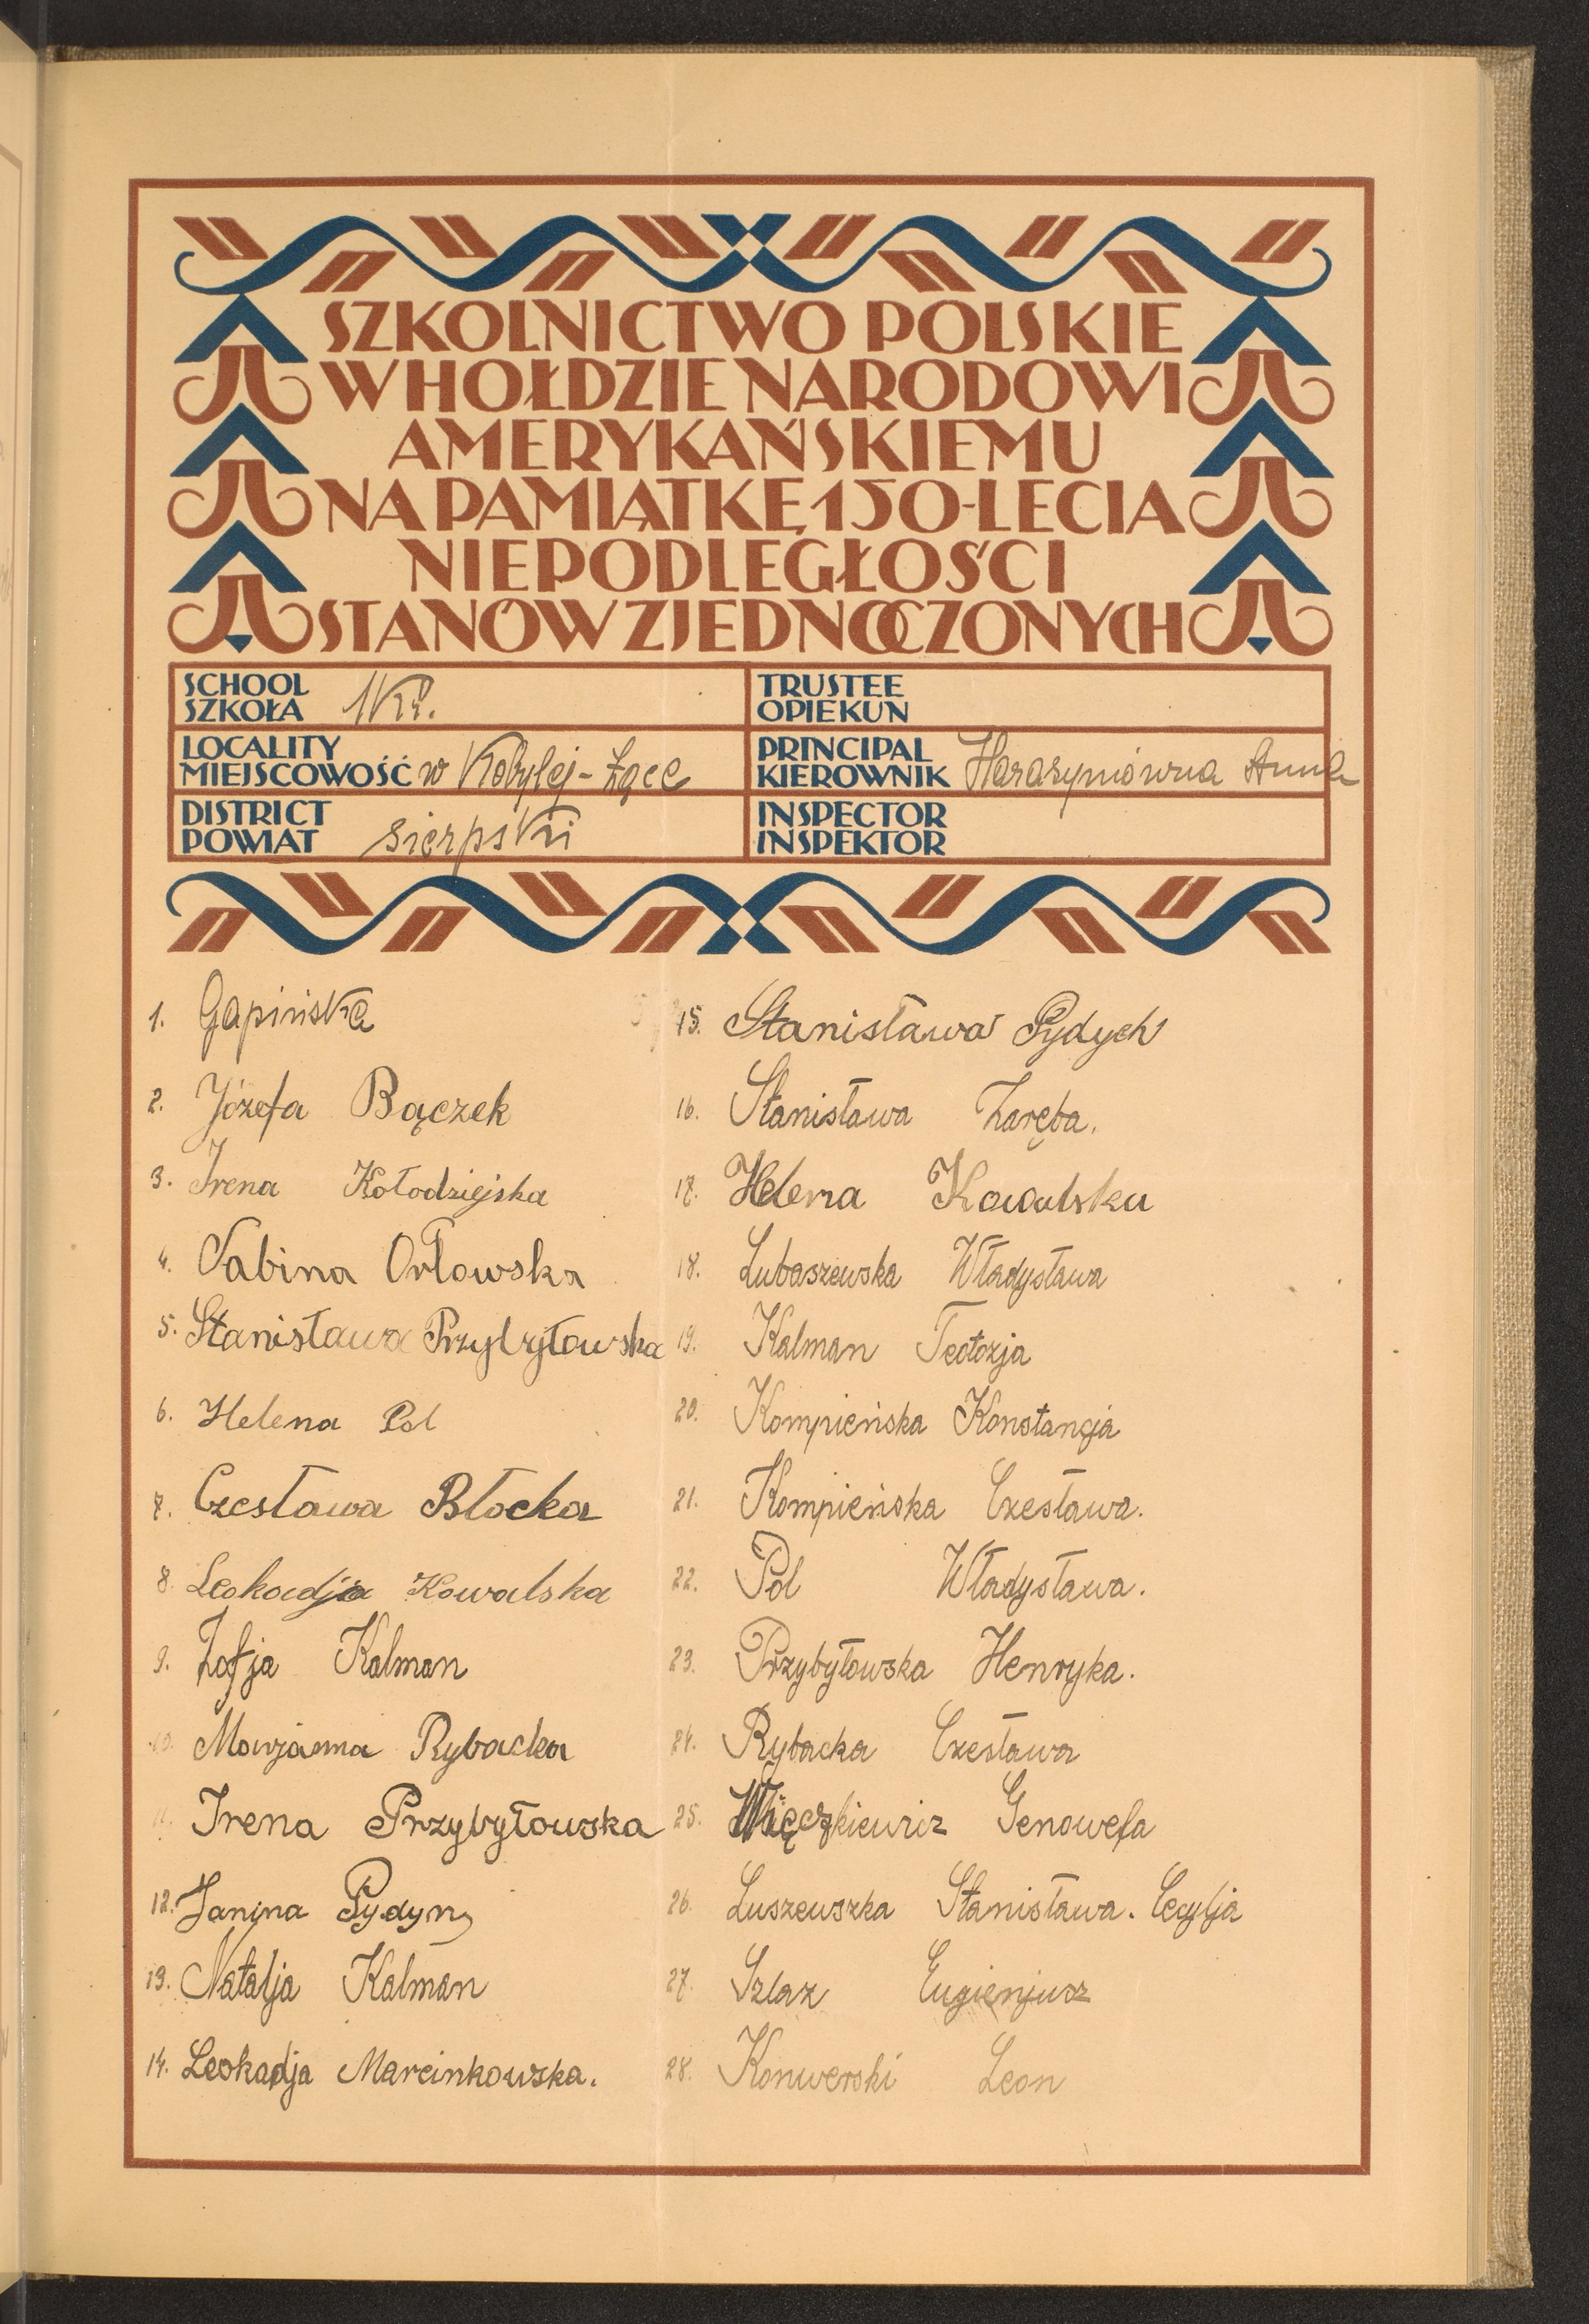 SZKOLNICTWO POLSKIE
W HOŁDZIE NARODOWI
AMERYKAŃSKIEMU
NA PAMIĄTKĘ 150-LECIA
NIEPODLEGŁOŚCI
STANÓW ZJEDNOCZONYCH
SCHOOL
SZKOŁA 1 kl.
TRUSTEE
OPIEKUN
LOCALITY
MIEJSCOWOŚĆ w Kobylej-Łące
PRINCIPAL
KIEROWNIK Harazymówna Anna
DISTRICT
POWIAT sierpski
INSPECTOR
INSPEKTOR
1. Gapińska
2. Józefa Bączek
3. Irena Kołodziejska
4. Sabina Orłowska
5. Stanisława Przybyłowska
6. Helena Pol
7. Czesława Błocka
8. Leokadja Kowalska
9. Zofja Kalman
10. Marjanna Rybacka
11. Irena Przybyłowska
12. Janina Pydyn
13. Natalja Kalman
14. Leokadja Marcinkowska.
15. Stanisława Pydych
16. Stanisława Zaręba.
17. Helena Kowalska
18. Lubaszewska Władysława
19. Kalman Teofozja
20. Kompieńska Konstancja
21. Kompieńska Czesława.
22. Pol Władysława.
23. Przybyłowska Henryka.
24. Rybacka Czesława
25. Więczkiewicz Genowefa
26. Luszewszka Stanisława. Cecylja
27. Szlaz Eugienjusz
28. Konwerski Leon